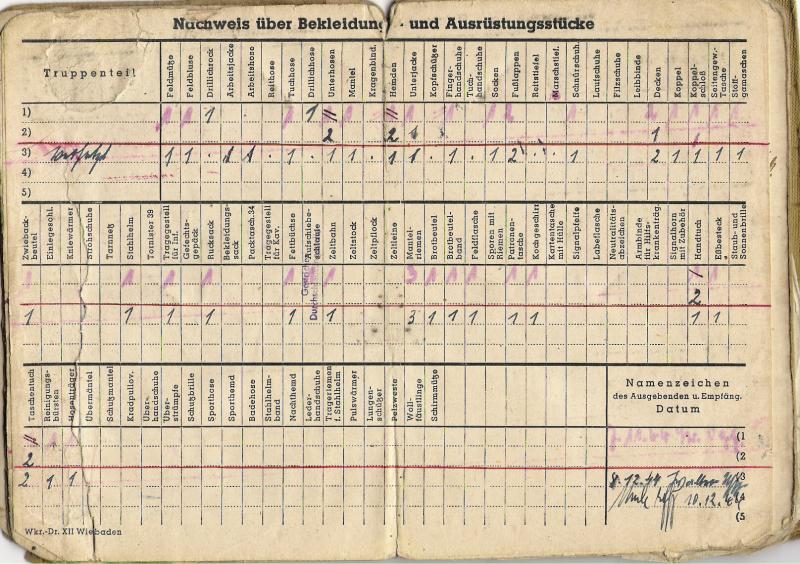 Nachweis über Bekleidungs- und Ausrüstungsstücke
Truppenteil Feldmütze Feldbluse Drillichrock Arbeitsjacke Arbeitshose Reithose Tuchhose Drillichhose Unterhosen Mantel Kragenbind. Hemden Unterjacke Kopfschützer Finger-handschuhe Tuch-handschuhe Socken Fußlappen Reitstiefel Marschstief. Schnürschuh. Laufschuhe Filzschuhe Leibbinde Decken Koppel Koppel-schloß Seitengew.-Tasche Stoff-gamaschen
1) 1 1 1 1 1 11 1 11 1 1 1 1 2 1
2) 2 2 1
3) 1 1 1 1 1 1 1 1 1 1 1 1 2 1 2 1 1 1 1
4)
5)
Zwieback-beutel Einlegesohl. Kniewärmer Strohschuhe Tarnnetz Stahlhelm Tornister 39 Tragegestell für Inf. Gefechts-gepäck Rucksack Bekleidungs-sack Packtasch.34 Tragegestell für Kav. Fettbüchse Aufschiebe-schlaufe Zeltbahn Zeltstock Zeltpflock Zeltleine Mantel-riemen Brotbeutel Brotbeutel-band Feldflasche Sporen mit Riemen Patronen-tasche Kochgeschirr Kartentasche mit Hülle Signalpfeife Labeflasche Neutralitäts-abzeichen Armbinde für Hilfs-krankenträg. Signalhorn mit Zubehör Handtuch Eßbesteck Staub- und Sonnenbrille
1 1 1 1 1 1 1 3 1 1 1 1 1 1 1
2
1 1 1 1 1 1 3 1 1 1 1 1 1 1
Taschentuch Reinigungs-bürsten Hosenträger Übermäntel Schutzmantel Kradpullov. Über-handschuhe Über-strümpfe Schutzbrille Sporthose Sporthemd Badehose Stahlhelm-band Nachthemd Leder-handschuhe Trageriemen f. Stahlhelm Pulswärmer Lungen-schützer Pelzweste Woll-fäustlinge Schirmmütze
Namenzeichen
des Ausgebenden u. Empfäng.
Datum
11 1 1 (1
2 (2
2 1 1 8.12.44 3
10.12.44 4
(5
Wkr.-Dr. XII Wiesbaden